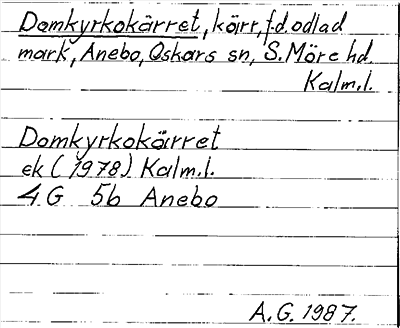 Domkyrkokärret, kärr, f.d. odlad
mark, Anebo, Oskars sn, S. Möre hd
Kalm.l.
Domkyrkokärret
ek (1978) Kalm.l.
4 G 5b Anebo
A.G. 1987.